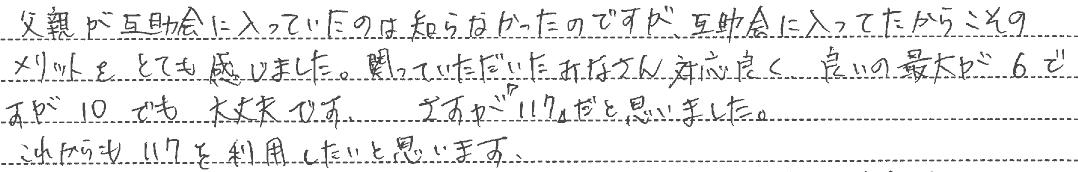 父親が互助会に入っていたのは知らなかったのですが、互助会に入ってたからこその
メリットをとても感じました。関っていただいたみなさん対応良く、良いの最大が6で
すが10でも大丈夫です。さすが「117」だと思いました。
これからも117を利用したいと思います。